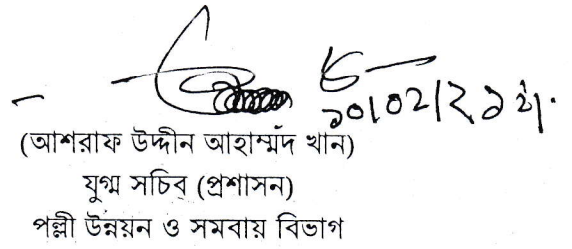 (আশরাফ উদ্দীন আহাম্মদ খান)
যুগ্ম সচিব (প্রশাসন)
পল্লী উন্নয়ন ও সমবায় বিভাগ